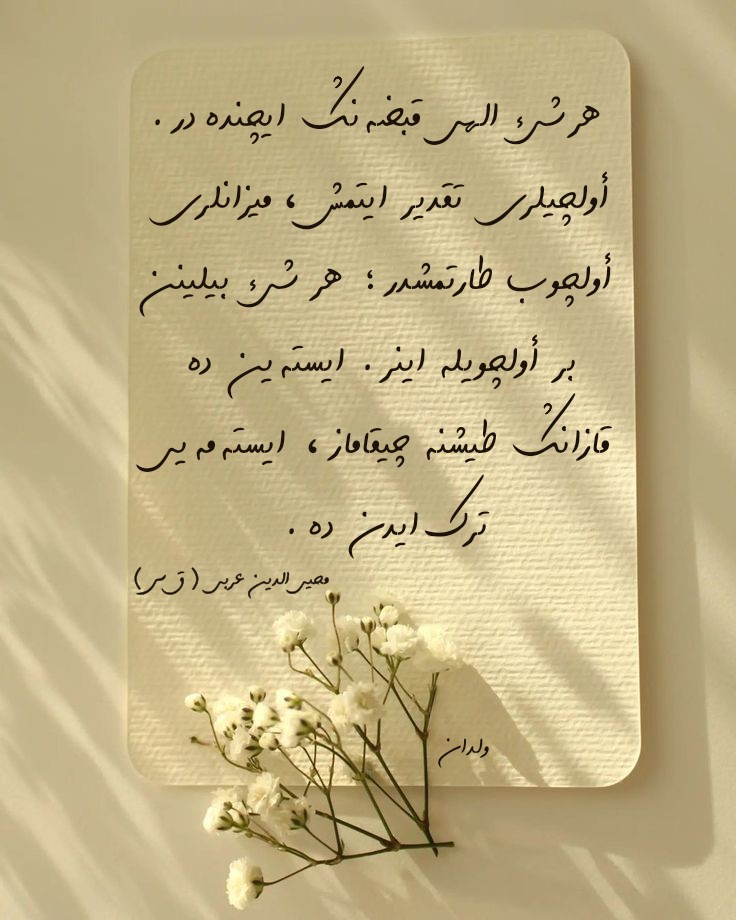 هر شیء الهی قبضه نڭ ایچنده در .
أولچیلری تقدیر ایتمش ، میزانلری
أولچوب طارتمشدر ؛ هر شیء بیلینن
بر أولچویله اینر . ایسته ین ده
قازانڭ طیشنه چیقاماز ، ایسته مه یی
ترك ایدن ده .
محیی الدین عربی ( ق س )
ولدان